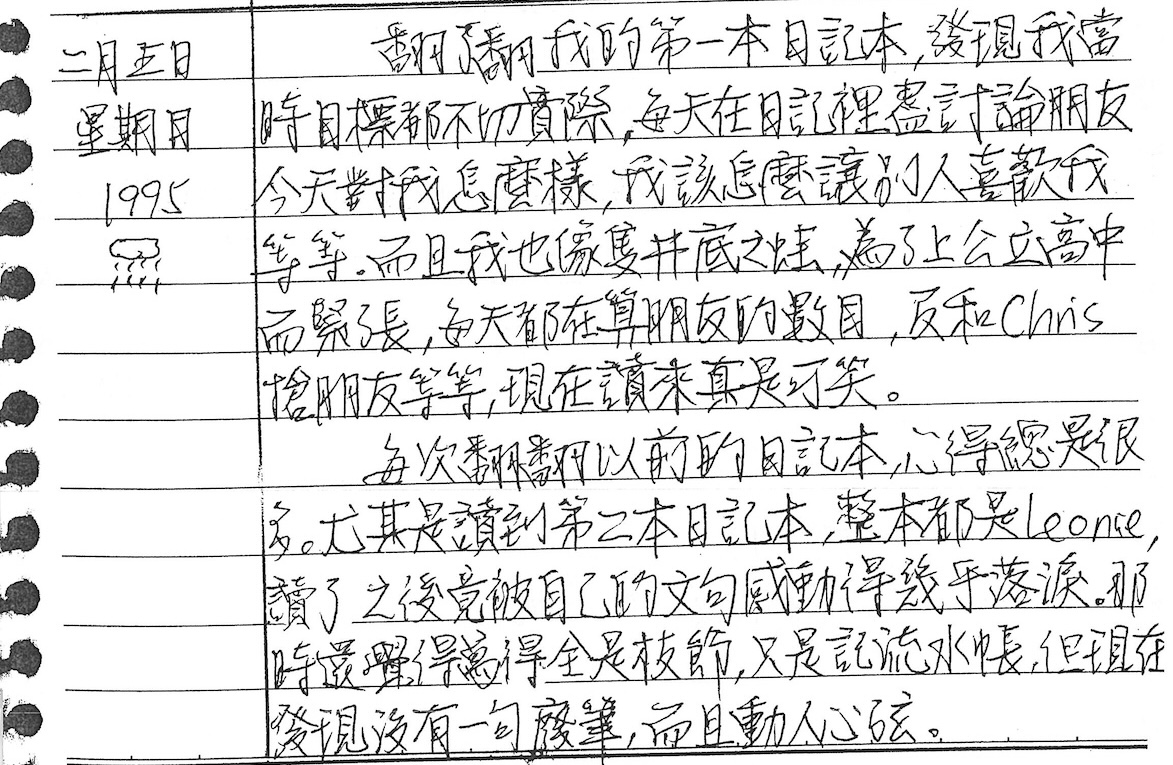 二月五日
星期日
1995
翻了翻我的第一本日記本,發現我當
時目標都不切實際,每天在日記裡盡討論朋友
今天對我怎麼樣,我該怎麼讓別人喜歡我
等等.而且我也像隻井底之蛙,為了上公立高中
而緊張,每天都在算朋友的數目,反和Chris
搶朋友等等,現在讀來真是可笑。
每次翻翻以前的日記本,心得總是很
多。尤其是讀到第二本日記本,整本都是Leonie,
讀了之後竟被自己的文句感動得幾乎落淚.那
時還覺得寫得全是枝節,只是記流水帳,但現在
發現沒有一句廢筆,而且動人心弦。